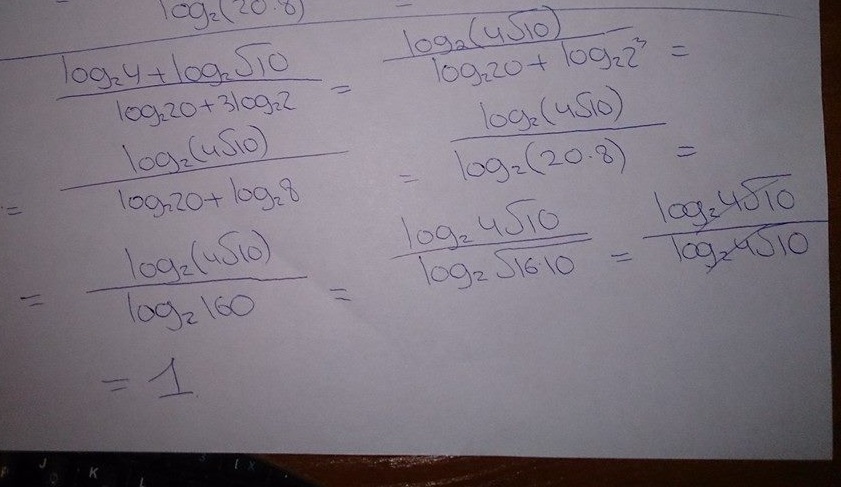 log₂(20·8)
(log₂4 + log₂√10)/(log₂20 + 3log₂2) = (log₂(4√10))/(log₂20 + log₂2³) =
= (log₂(4√10))/(log₂20 + log₂8) = (log₂(4√10))/(log₂(20·8)) =
= (log₂(4√10))/(log₂160) = (log₂4√10)/(log₂√16·10) = (log₂4√10)/(log₂4√10)
= 1
J
K
L